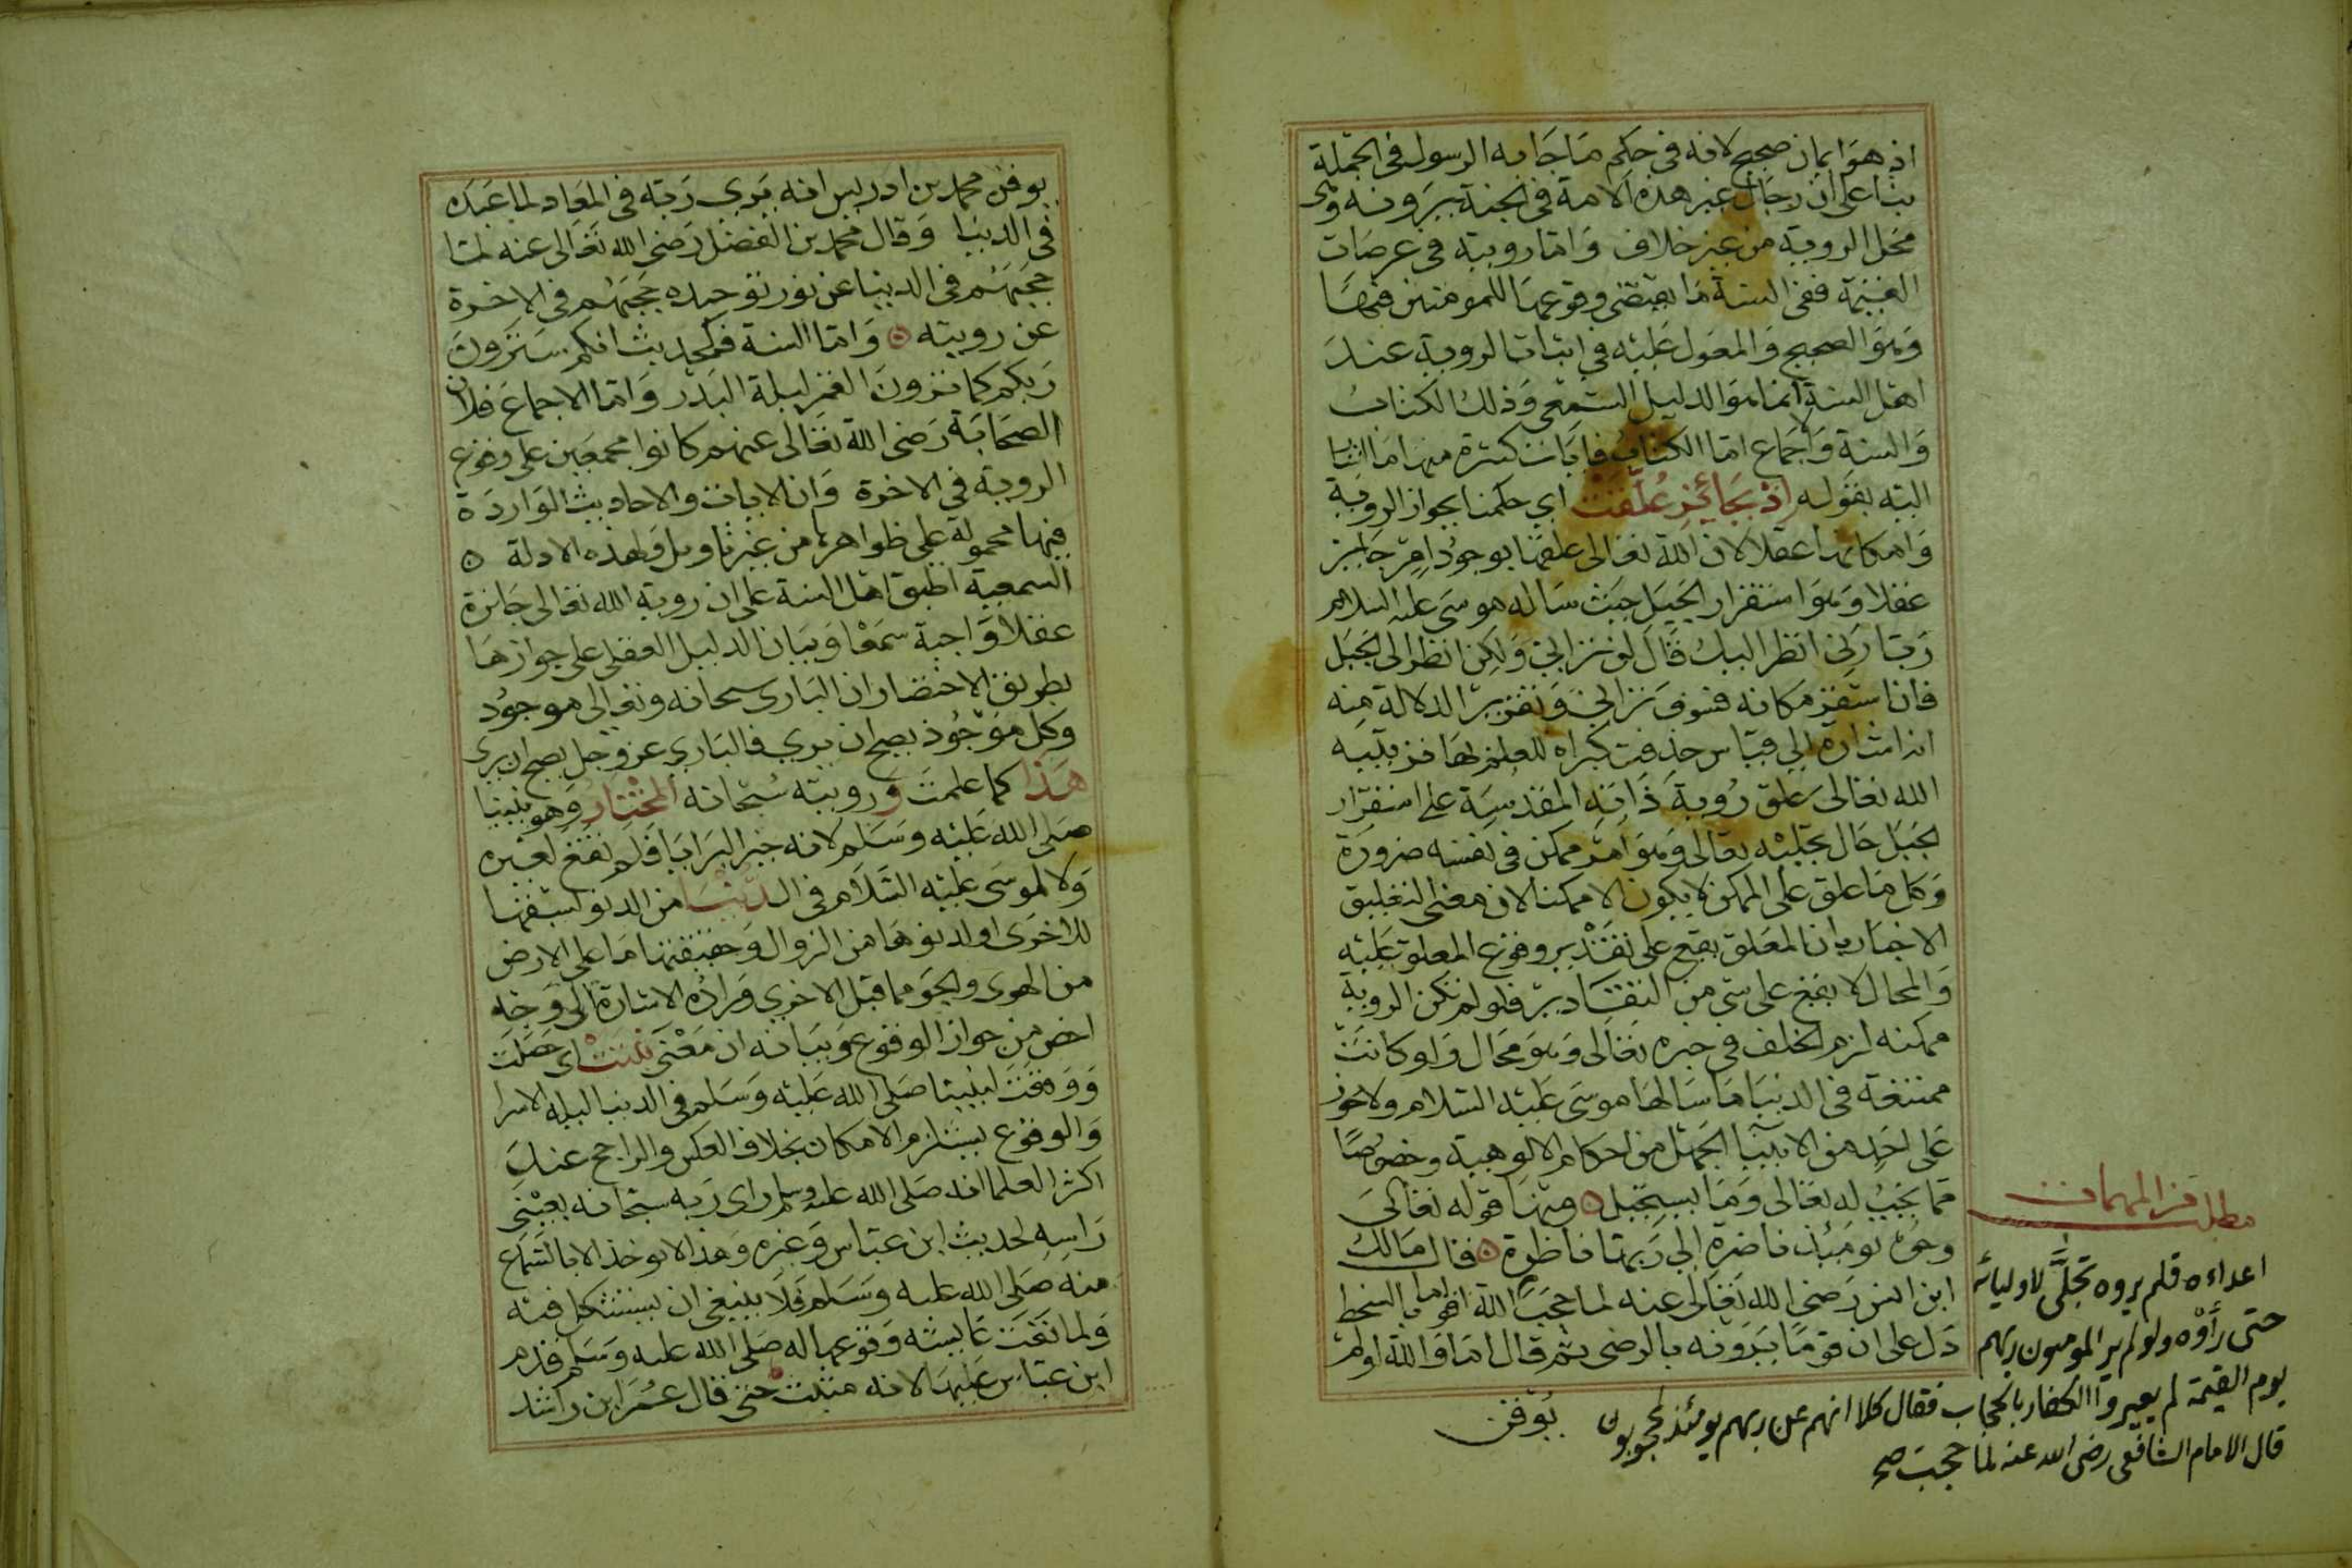 اذ هو ايمان صحيح لانه في حكم ما جا به الرسول في الجملة
بنا على ان رجال غير هذه الامة في الجنة يرونه وهي
محل الروية من غير خلاف واما رويته في عرصات
القيمة ففي السنة ما يقتضي وقوعها للمومنين فيها
وهو الصحيح والمعول عليه في اثبات الروية عند
اهل السنة انما هو الدليل السمعي وذلك الكتاب
والسنة والاجماع اما الكتاب فايات كثيرة منها ما اشار
اليه بقوله اذ بجائز علقت اي حكمنا بجواز الروية
وامكانها عقلا لان الله تعالى علقها بوجود امر جايز
عقلا وهو استقرار الجبل حيث ساله موسى عليه السلام
رب ارني انظر اليك قال لن تراني ولكن انظر الى الجبل
فان استقر مكانه فسوف تراني وتقرير الدلالة منه
انه اشارة الى قياس حذفت كبراه للعلم بها فرتبه
الله تعالى علق روية ذاته المقدسة على استقرار
الجبل حال تجليه تعالى وهو امر ممكن في نفسه ضرورة
وكل ما علق على الممكن لا يكون الا ممكنا لان معنى التعليق
الاخبار بان المعلق يقع على تقدير وقوع المعلق عليه
والمحال لا يقع على شي من التقادير فلو لم تكن الروية
ممكنه لزم الخلف في خبره تعالى وهو محال ولو كانت
ممتنعة في الدنيا ما سالها موسى عليه السلام ولا يجوز
على احد من الانبيا الجهل من احكام الالوهية وخصوصا
مما يجب له تعالى وما يستحيل ومنها قوله تعالى
وجوه يومئذ ناضرة الى ربها ناظرة فقال مالك
ابن انس رضي الله تعالى عنه لما حجب الله اقواما بالسخط
دل على ان قوما يرونه بالرضى ثم قال اما والله لو لم
مطلب من المهمات
اعداءه فلم يروه تجلى لاوليائه
حتى رأوه ولو لم ير المومنون ربهم
يوم القيمة لم يعير الكفار بالحجاب فقال كلا انهم عن ربهم يومئذ لمحجوبون
قال الامام الشافعي رضي الله عنه لما حجبت صح
يوقن
يوقن محمد بن ادريس انه يرى ربه في المعاد لما عبده
في الدنيا وقال محمد بن الفضل رضي الله تعالى عنه لما
حجبهم في الدنيا عن نور توحيده حجبهم في الاخرة
عن رويته واما السنة فكحديث انكم سترون
ربكم كما ترون القمر ليلة البدر واما الاجماع فلان
الصحابة رضي الله تعالى عنهم كانوا مجمعين على وقوع
الروية في الاخرة وان الايات والاحاديث الواردة
فيها محمولة على ظواهرها من غير تاويل ولهذه الادلة
السمعية اطبق اهل السنة على ان روية الله تعالى جائزة
عقلا واجبة سمعا وبيان الدليل العقلي على جوازها
بطريق الاختصار ان الباري سبحانه وتعالى موجود
وكل موجود يصح ان يرى فالباري عز وجل يصح ان يرى
هذا كما علمت ورويته سبحانه للمختار وهو نبينا
صلى الله عليه وسلم لانه خير البرايا فلم تقع لغيره
ولا لموسى عليه السلام في الدنيا من الدنو لسبقها
للاخرى او لدنوها من الزوال وحقيقتها ما على الارض
من الهوى والجو مما قبل الاخرى ومراده الاشارة الى وجه
اخص من جواز الوقوع وبيانه ان معنى ثبتت اي حصلت
ووقعت لنبينا صلى الله عليه وسلم في الدنيا ليلة الاسرا
والوقوع يستلزم الامكان بخلاف العكس والراجح عند
اكثر العلما انه صلى الله عليه وسلم راى ربه سبحانه بعيني
راسه لحديث ابن عباس وغيره وهذا لا يوخذ الا بالسماع
منه صلى الله عليه وسلم فلا ينبغي ان يستشكل فيه
ولما نفت عايشة وقوعها له صلى الله عليه وسلم قدم
ابن عباس عليها لانه مثبت حتى قال عمر ابن راشد